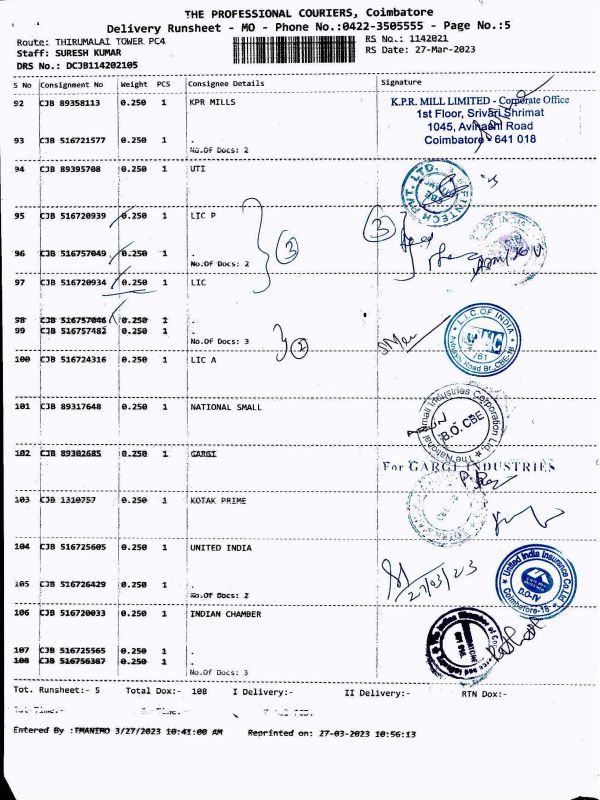 THE PROFESSIONAL COURIERS, Coimbatore
Delivery Runsheet - MO - Phone No.:0422-3505555 - Page No.:5
Route: THIRUMALAI TOWER PC4 RS No.: 1142021
Staff: SURESH KUMAR RS Date: 27-Mar-2023
DRS No.: DCJB114202105
S No Consignment No Weight PCS Consignee Details Signature
92 CJB 89358113 0.250 1 KPR MILLS
K.P.R. MILL LIMITED - Corporate Office
1st Floor, Srivari Shrimat
1045, Avinashi Road
Coimbatore - 641 018
93 CJB 516721577 0.250 1 .
No.Of Docs: 2
94 CJB 89395708 0.250 1 UTI
95 CJB 516720939 0.250 1 LIC P
96 CJB 516757049 0.250 1 .
No.Of Docs: 2
97 CJB 516720934 0.250 1 LIC
98 CJB 516757046 0.250 1 .
99 CJB 516757482 0.250 1 .
No.Of Docs: 3
L.I.C OF INDIA
100 CJB 516724316 0.250 1 LIC A
101 CJB 89317648 0.250 1 NATIONAL SMALL
The National Small Industries Corporation Ltd.
B.O. CBE
102 CJB 89302685 0.250 1 GARGI
For GARGI INDUSTRIES
103 CJB 1310757 0.250 1 KOTAK PRIME
104 CJB 516725605 0.250 1 UNITED INDIA
27/03/23
United India Insurance Co Ltd
D.O-IV
Coimbatore-18
105 CJB 516726429 0.250 1 .
No.Of Docs: 2
106 CJB 516720033 0.250 1 INDIAN CHAMBER
107 CJB 516725565 0.250 1 .
108 CJB 516756387 0.250 1 .
No.Of Docs: 3
Tot. Runsheet:- 5 Total Dox:- 108 I Delivery:- II Delivery:- RTN Dox:-
Entered By :TMANIMO 3/27/2023 10:41:00 AM Reprinted on: 27-03-2023 10:56:13